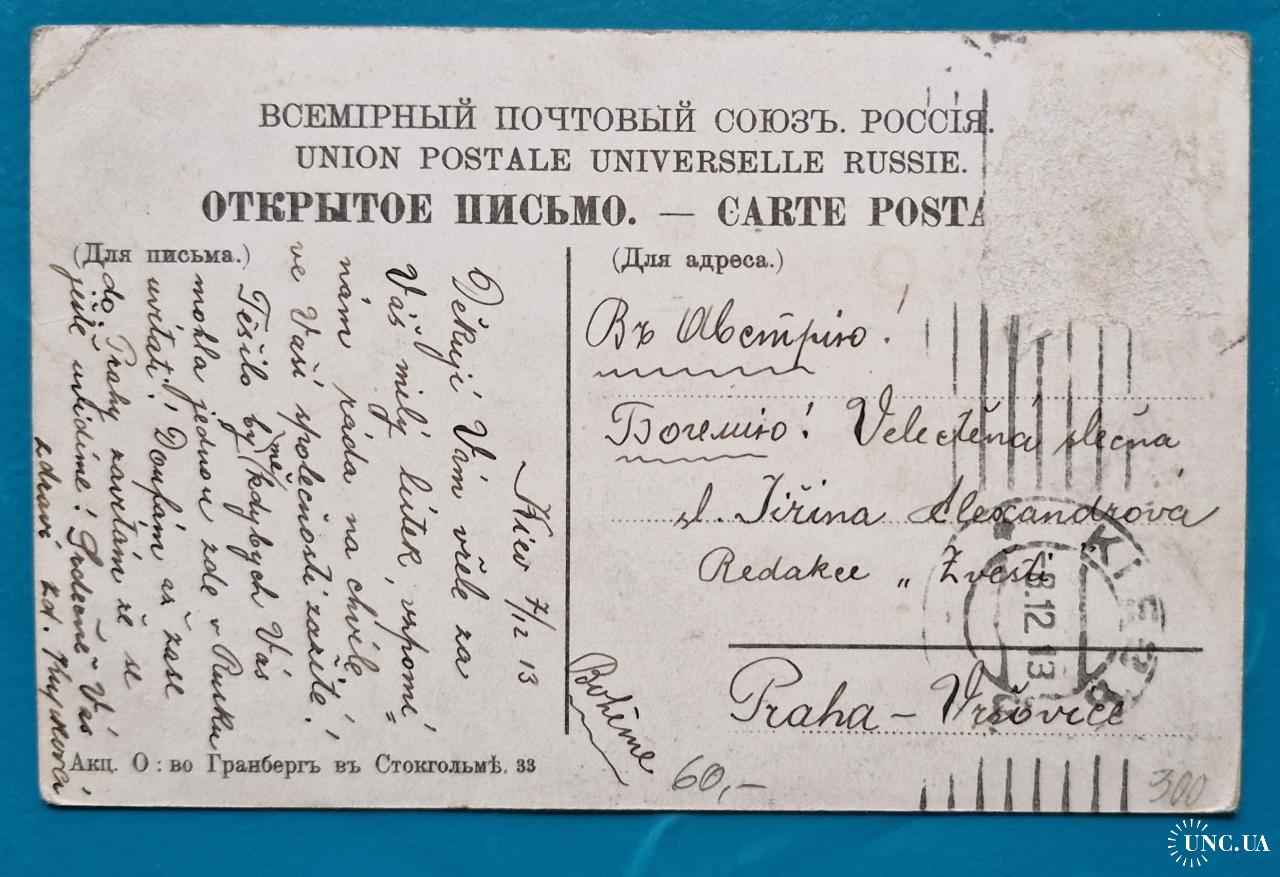 ВСЕМІРНЫЙ ПОЧТОВЫЙ СОЮЗЪ. РОССІЯ.
UNION POSTALE UNIVERSELLE RUSSIE.
ОТКРЫТОЕ ПИСЬМО. — CARTE POSTA
(Для письма.)
Kiev 7/12 13
Děkuji Vám vřele za
Váš milý lístek, vzpomí
nám ráda na chvíle
ve Vaší společnosti zažité.
Těšilo by mě, kdybych Vás
mohla jednou zde v Rusku
uvítati! Doufám až zase
do Prahy zavítám že se
ještě uvidíme! Srdečně Vás
zdraví
Акц. О: во Гранбергъ въ Стокгольмѣ. 33
(Для адреса.)
Въ Австрію!
Богемію! Velectěná slečna
sl. Jiřina Alexandrová
Redakce „Zvěsti
Praha - Vršovice
Bohême
60,-
300
КІЕВЪ
8.12.13
UNC.UA